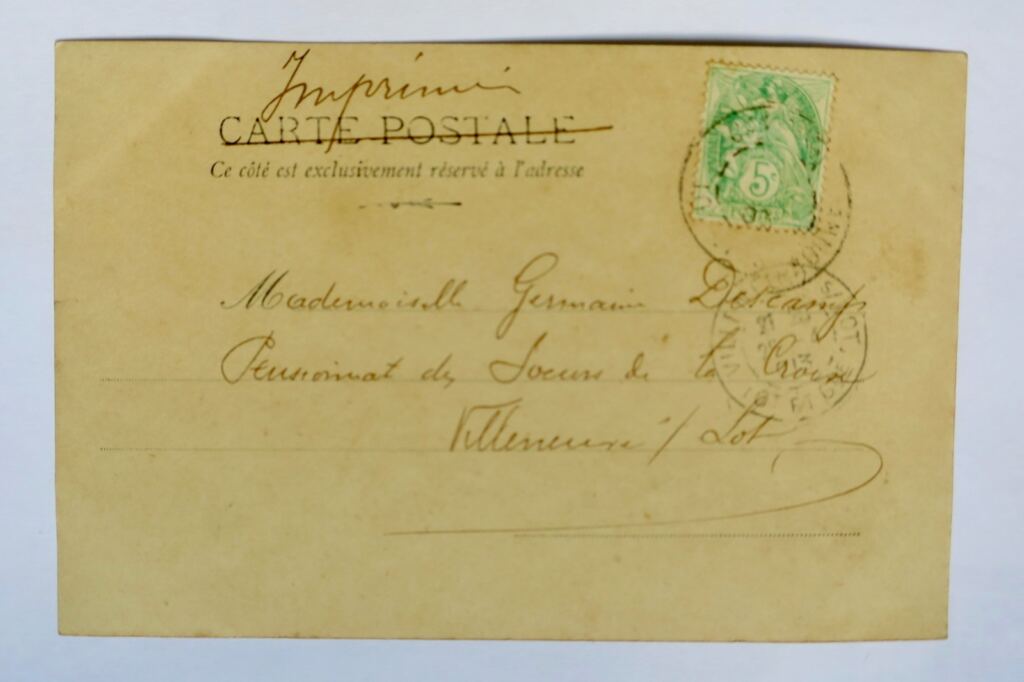 Imprimé
CARTE POSTALE
Ce côté est exclusivement réservé à l'adresse
5c
Mademoiselle Germaine Descamps
Pensionnat des Soeurs de la Croix
Villeneuve s/ Lot